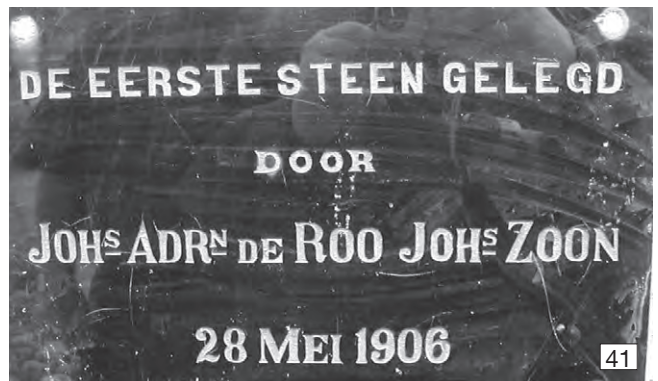 DE EERSTE STEEN GELEGD
DOOR
JOHS ADRN DE ROO JOHS ZOON
28 MEI 1906
41